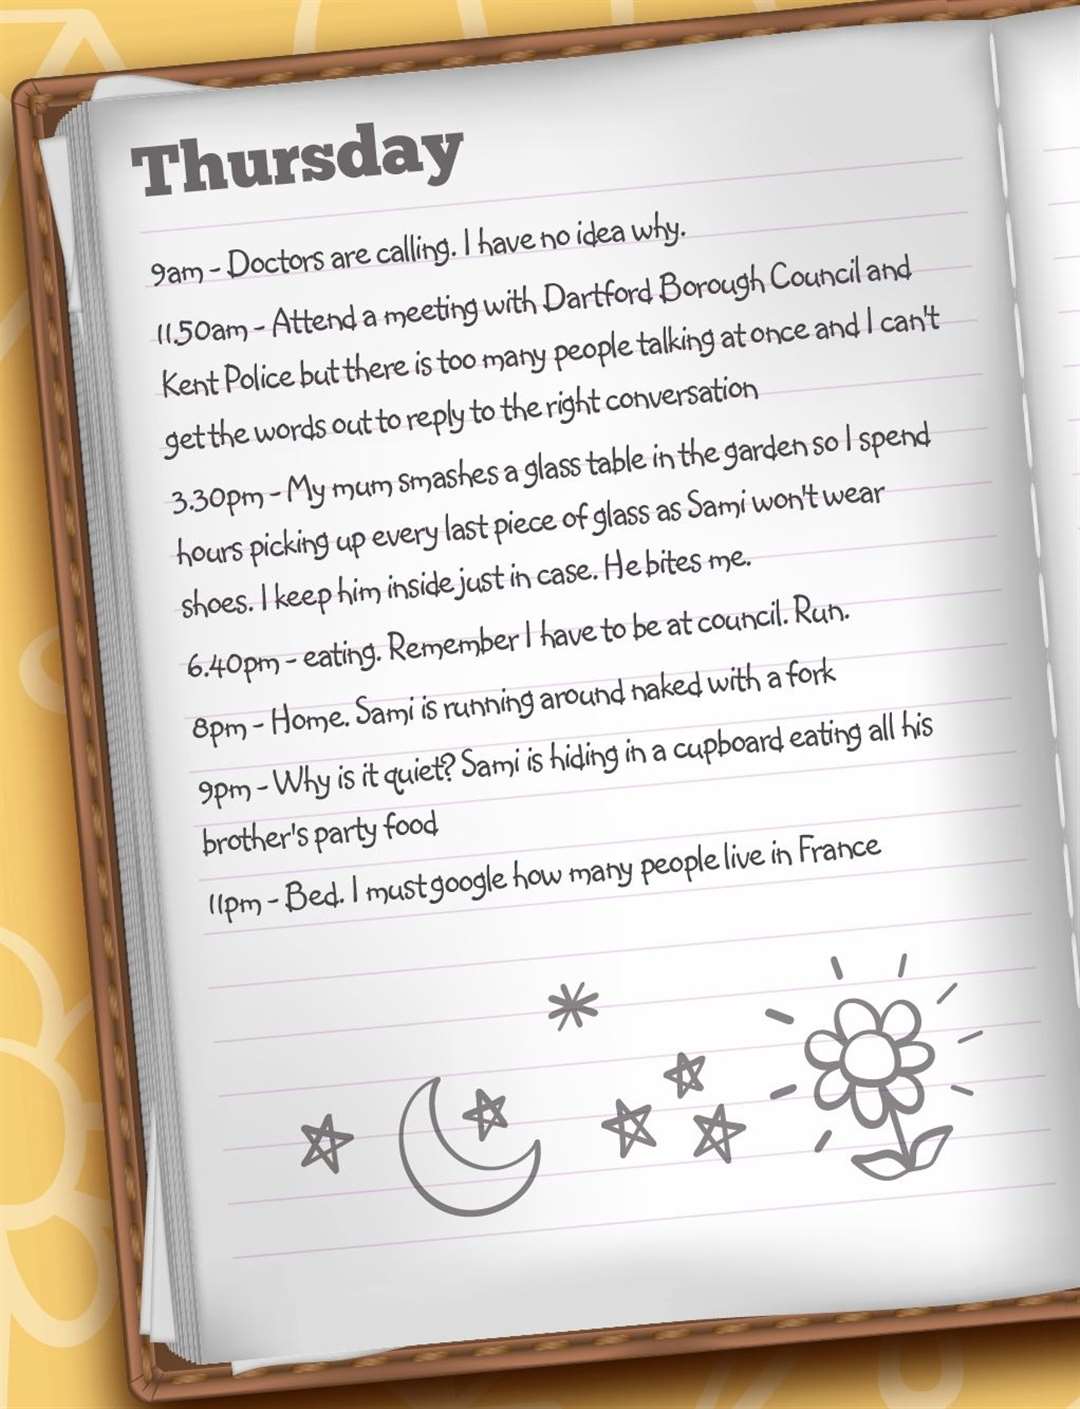 Thursday
9am - Doctors are calling. I have no idea why.
11.50am - Attend a meeting with Dartford Borough Council and
Kent Police but there is too many people talking at once and I can't
get the words out to reply to the right conversation
3.30pm - My mum smashes a glass table in the garden so I spend
hours picking up every last piece of glass as Sami won't wear
shoes. I keep him inside just in case. He bites me.
6.40pm - eating. Remember I have to be at council. Run.
8pm - Home. Sami is running around naked with a fork
9pm - Why is it quiet? Sami is hiding in a cupboard eating all his
brother's party food
11pm - Bed. I must google how many people live in France